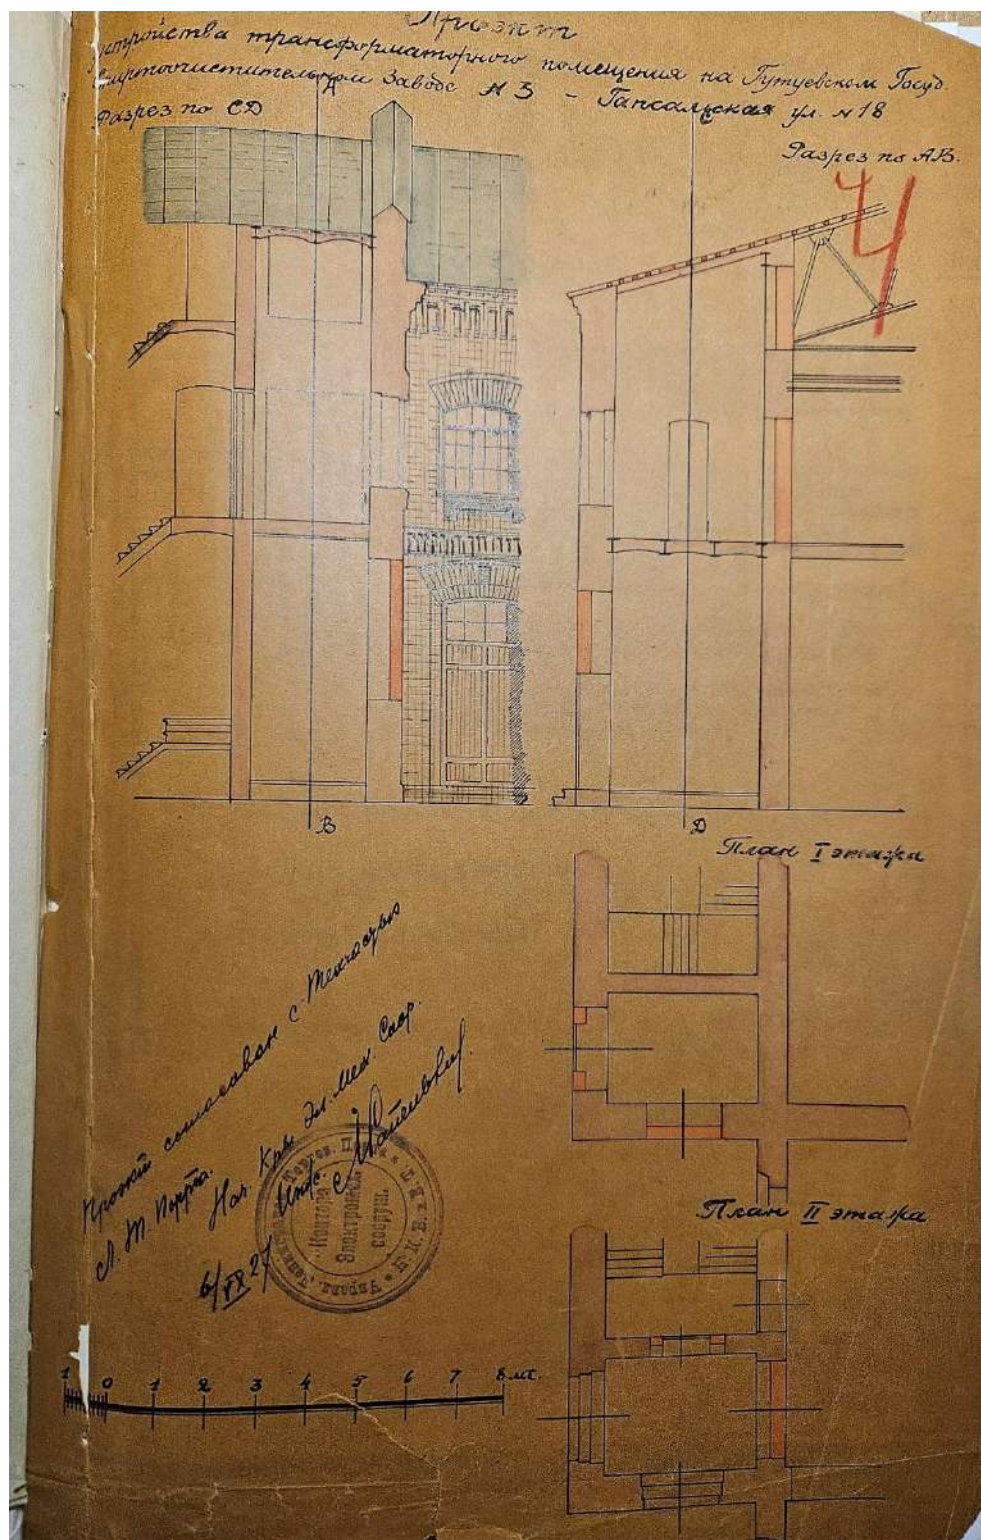 Проэкт
устройства трансформаторного помещения на Гутуевском Госуд.
спиртоочистительном Заводе № 3 – Гапсальская ул. № 18
Разрез по СД
Разрез по АВ.
4
А
С
В
Д
План I этажа
Проэкт согласован с Техчастью
Л. Т. Порта.
Нач. Эл. Мех. Соор.
Инж.
6/ 27
Контора
Электромех.
сооруж.
План II этажа
1 0 1 2 3 4 5 6 7 8 мт.